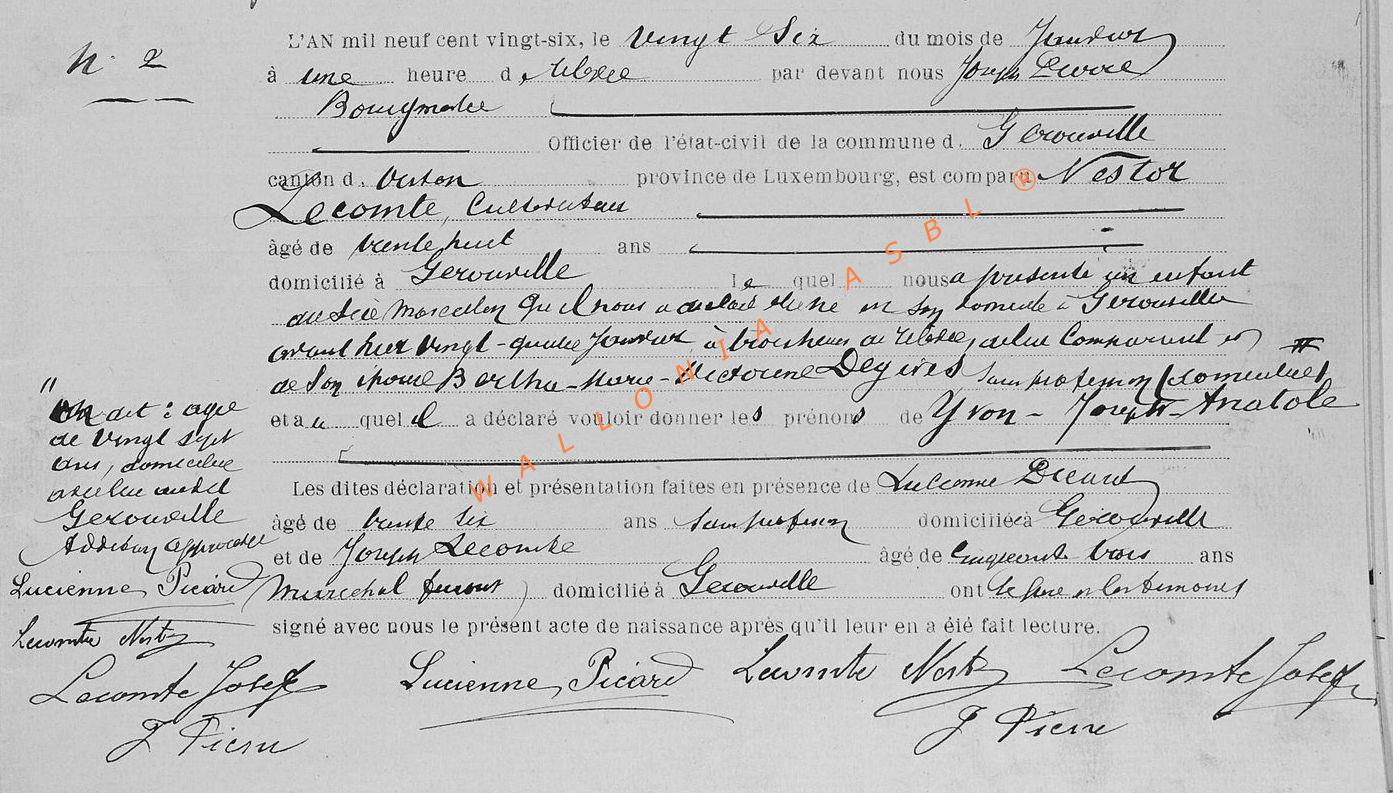 N. 2
L'AN mil neuf cent vingt-six, le vingt Six du mois de Janvier
à une heure d. relevée par devant nous Joseph Pierre
Bourgmestre
Officier de l'état-civil de la commune d. Gerouville
canton d. Virton province de Luxembourg, est comparu Nestor
Lecomte, Cultivateur
âgé de trente huit ans
domicilié à Gerouville Le quel nous a présenté un enfant
du sexe masculin qu'il nous a déclaré être né en son domicile à Gerouville
avant hier vingt-quatre Janvier à trois heures de relevée, de lui comparant et
de Son épouse Bertha-Marie-Victorine Degives sans profession (domiciliée)
et au quel il a déclaré vouloir donner les prénoms de Yvon - Joseph-Anatole
Les dites déclaration et présentation faites en présence de Lucienne Picard
âgé de trente six ans sans profession domiciliée à Gerouville
et de Joseph Lecomte âgé de cinquante trois ans
Maréchal ferrant domicilié à Gerouville ont le père et les témoins
signé avec nous le présent acte de naissance après qu'il leur en a été fait lecture.
Lecomte Josef Lucienne Picard Lecomte Nestor Lecomte Josef
J Pierre J Pierre
" On dit : agée
de vingt sept
ans, domiciliée
Gerouville
Addition approuvée
Lucienne Picard
Lecomte Nestor
WALLONIA ASBL ®